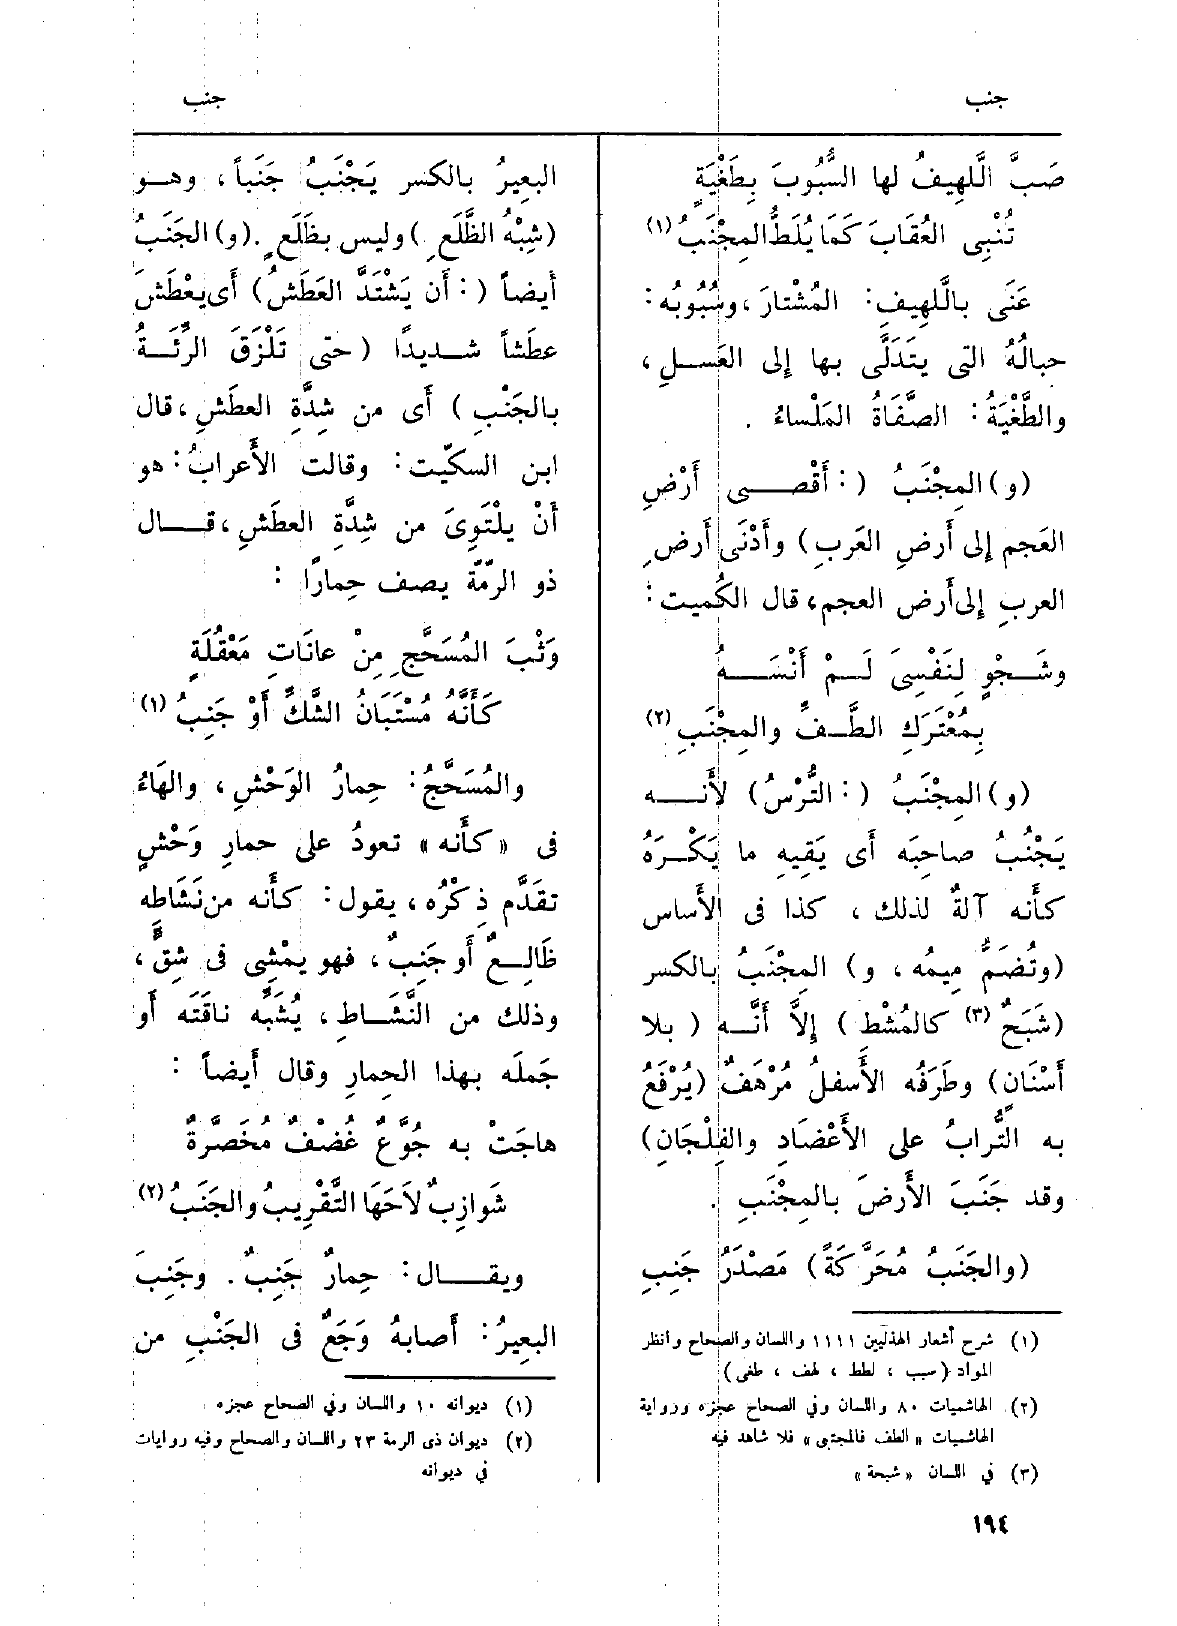 جنب
جنب
صَبَّ اللَّهِيفُ لها السُّبُوبَ بِطَغْيَةٍ
تُنْبِى العُقَابَ كَمَا يُلَطُّ المِجْنَبُ (١)
عَنَى بالَّلهِيفِ: المُشْتارَ، وسُبُوبُه:
حبالُهُ التى يتَدَلَّى بها إلى العَسلِ،
والطَّغْيَةُ: الصَّفَاةُ المَلْساءُ .
(و) المِجْنَبُ (: أَقْصى أَرْضِ
العَجم إلى أرضِ العَربِ) وأَدْنَى أرضِ
العربِ إلى أَرض العجم، قال الكُميت:
وشَجْوٍ لِنَفْسِىَ لَمْ أَنْسَهُ
بِمُعْتَرَكِ الطَّفِّ والمِجْنَبِ (٢)
(و) المِجْنَبُ (: التُّرْسُ) لأَنه
يَجْنُبُ صاحبَه أى يَقيهِ ما يَكْرَهُ
كأَنه آلةٌ لذلك، كذا فى الأَساس
(وتُضَمُّ مِيمُه، و) المِجْنَبُ بالكسر
(شَبَحٌ (٣) كالمُشْط) إلاَّ أنَّه (بلا
أَسْنَانٍ) وطَرَفُه الأَسفلُ مُرْهَفٌ (يُرْفَعُ
به التُّرابُ على الأَعْضَادِ والفِلْجَانِ)
وقد جَنَبَ الأَرضَ بالمِجْنَبِ .
(والجَنَبُ مُحَرَّكَةً) مَصْدَرُ جَنِبَ
(١) شرح أشعار الهذليين ١١١١ واللسان والصحاح وانظر
المواد (سبب ، لطط ، لهف ، طغى)
(٢) الهاشميات ٨٠ واللسان وفي الصحاح عجزه ورواية
الهاشميات «الطف فالمجتبى» فلا شاهد فيه
(٣) في اللسان «شبحة»
البعيرُ بالكسر يَجْنَبُ جَنَباً، وهو
(شِبْهُ الظَّلَعِ) وليس بظَلَعٍ. (و) الجَنَبُ
أَيضاً (: أَن يَشْتَدَّ العَطَشُ) أَى يعْطَشَ
عطَشاً شديدًا (حتى تَلْزَقَ الرِّئَةُ
بالجَنْبِ) أَى من شِدَّةِ العطَشِ، قال
ابن السكّيت: وقالت الأَعرابُ: هو
أَنْ يلْتَوِىَ من شِدَّةِ العطَشِ، قال
ذو الرّمّة يصف حِمارًا :
وَثْبَ المُسَحَّجِ مِنْ عانَاتِ مَعْقُلَةٍ
كَأَنَّهُ مُسْتَبَانُ الشَّكِّ أَوْ جَنِبُ (١)
والمُسَحَّجُ: حِمارُ الوَحْشِ، والهَاءُ
فى «كأَنه» تعودُ على حمارِ وَحْشٍ
تقَدَّم ذِكْرُه، يقول: كأَنه من نَشَاطِه
ظَالِعٌ أو جَنِبٌ، فهو يمْشِى فى شِقٍّ،
وذلك من النَّشَاطِ، يُشَبِّه ناقَتَه أَو
جَملَه بهذا الحِمارِ وقال أيضاً :
هاجَتْ به جُوَّعٌ غُضْفٌ مُخَصَّرَةٌ
شَوازِبٌ لاَحَهَا التَّقْرِيبُ والجَنَبُ (٢)
ويقال: حِمارٌ جَنِبٌ. وجَنِبَ
البعيرُ: أَصابهُ وَجَعٌ فى الجَنْبِ من
(١) ديوانه ١٠ واللسان وفي الصحاح عجزه
(٢) ديوان ذى الرمة ٢٣ واللسان والصحاح وفيه روايات
في ديوانه
١٩٤